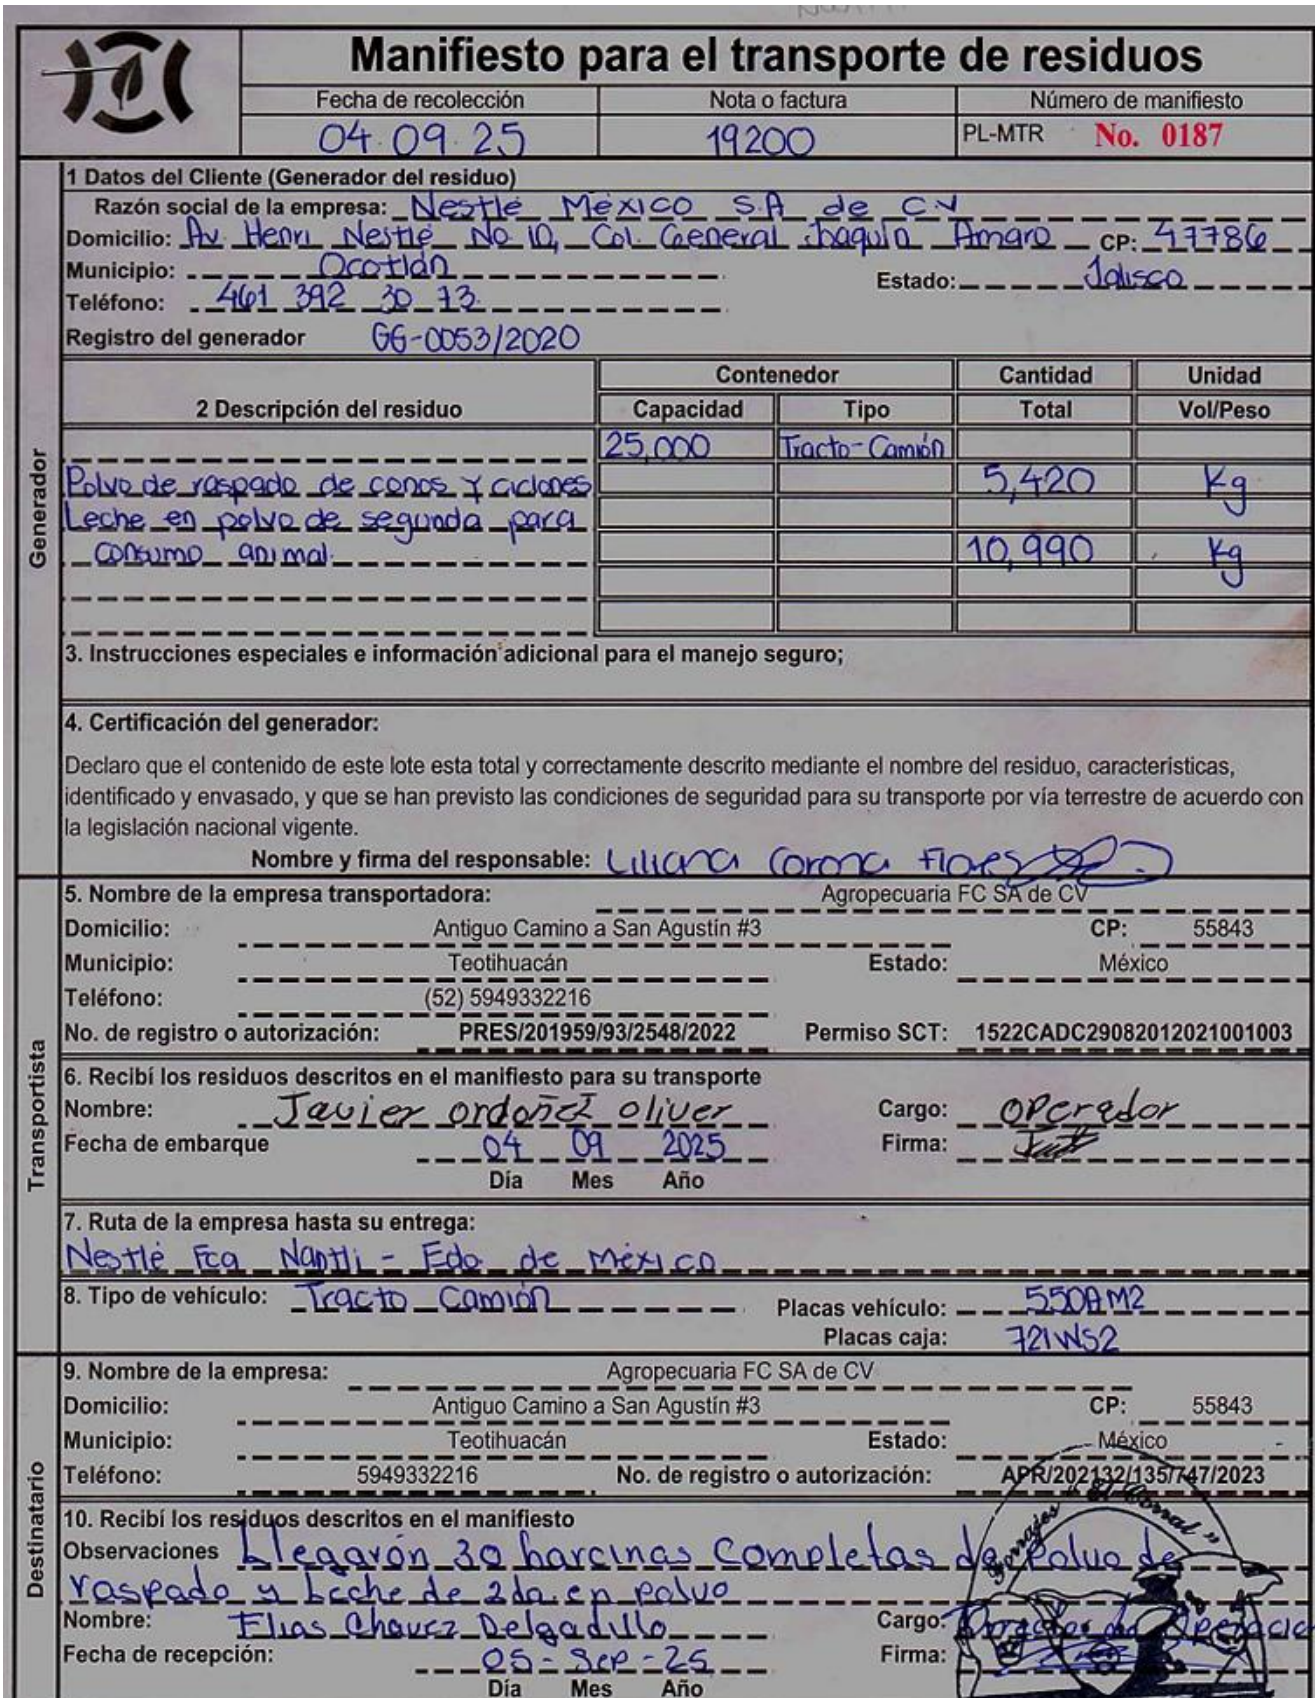 Manifiesto para el transporte de residuos
Fecha de recolección Nota o factura Número de manifiesto
04.09.25 19200 PL-MTR No. 0187
1 Datos del Cliente (Generador del residuo)
Razón social de la empresa: Nestlé México S.A de C.V
Domicilio: Av. Henri Nestlé No 10, Col. General Joaquín Amaro CP: 47786
Municipio: Ocotlán Estado: Jalisco
Teléfono: 461 392 30 73
Registro del generador GG-0053/2020
Contenedor Cantidad Unidad
2 Descripción del residuo Capacidad Tipo Total Vol/Peso
25,000 Tracto-Camión
Polvo de raspado de conos y ciclones 5,420 Kg
Leche en polvo de segunda para
consumo animal. 10,990 Kg
Generador
3. Instrucciones especiales e información adicional para el manejo seguro;
4. Certificación del generador:
Declaro que el contenido de este lote esta total y correctamente descrito mediante el nombre del residuo, características,
identificado y envasado, y que se han previsto las condiciones de seguridad para su transporte por vía terrestre de acuerdo con
la legislación nacional vigente.
Nombre y firma del responsable: Liliana Corona Flores
5. Nombre de la empresa transportadora: Agropecuaria FC SA de CV
Domicilio: Antiguo Camino a San Agustín #3 CP: 55843
Municipio: Teotihuacán Estado: México
Teléfono: (52) 5949332216
No. de registro o autorización: PRES/201959/93/2548/2022 Permiso SCT: 1522CADC29082012021001003
Transportista
6. Recibí los residuos descritos en el manifiesto para su transporte
Nombre: Javier ordoñez oliver Cargo: operador
Fecha de embarque 04 09 2025 Firma:
Día Mes Año
7. Ruta de la empresa hasta su entrega:
Nestlé Fca Nantli - Edo. de México
8. Tipo de vehículo: Tracto Camión Placas vehículo: 550AM2
Placas caja: 721WS2
9. Nombre de la empresa: Agropecuaria FC SA de CV
Domicilio: Antiguo Camino a San Agustín #3 CP: 55843
Municipio: Teotihuacán Estado: México
Teléfono: 5949332216 No. de registro o autorización: APR/202132/135/747/2023
Destinatario
10. Recibí los residuos descritos en el manifiesto
Forrajes "El Corral"
Observaciones Llegarón 30 harcinas Completas de polvo de
raspado y Leche de 2da. en polvo
Nombre: Elias Chavez Delgadillo Cargo: Director de
Fecha de recepción: 05-Sep-25 Firma:
Día Mes Año